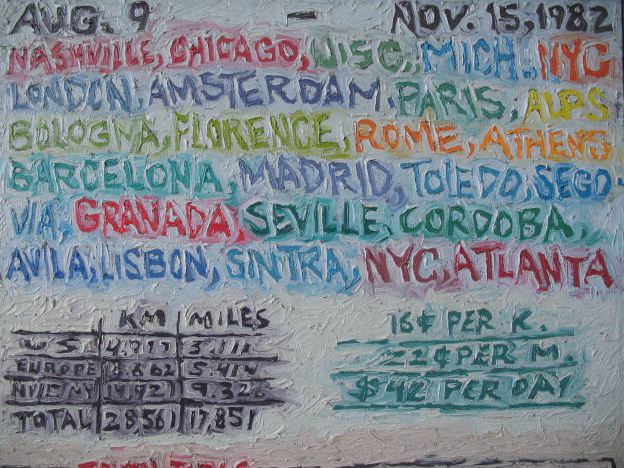 AUG. 9 – NOV. 15, 1982
NASHVILLE, CHICAGO, WISC., MICH., NYC
LONDON, AMSTERDAM, PARIS, ALPS
BOLOGNA, FLORENCE, ROME, ATHENS
BARCELONA, MADRID, TOLEDO, SEGO-
VIA, GRANADA, SEVILLE, CORDOBA,
AVILA, LISBON, SINTRA, NYC, ATLANTA
KM MILES
US 3,111
EUROPE 5,414
TOTAL 28,561 17,851
16¢ PER K.
22¢ PER M.
$42 PER DAY